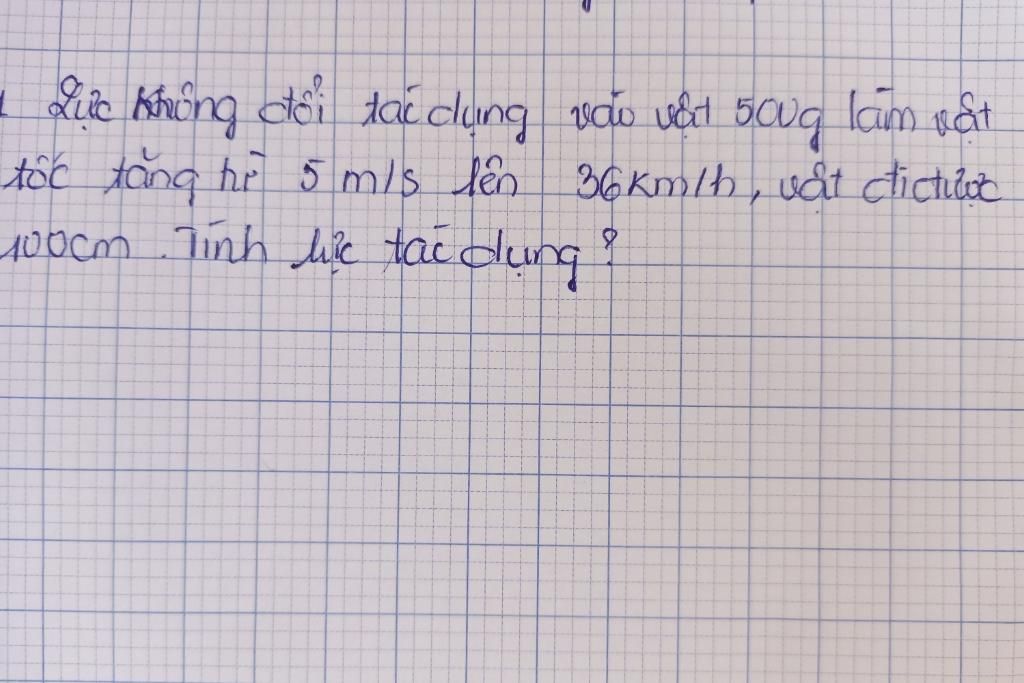 Lực không đổi tác dụng vào vật 500g làm vật
tốc tăng từ 5 m/s lên 36km/h, vật đi được
100cm. Tính lực tác dụng?